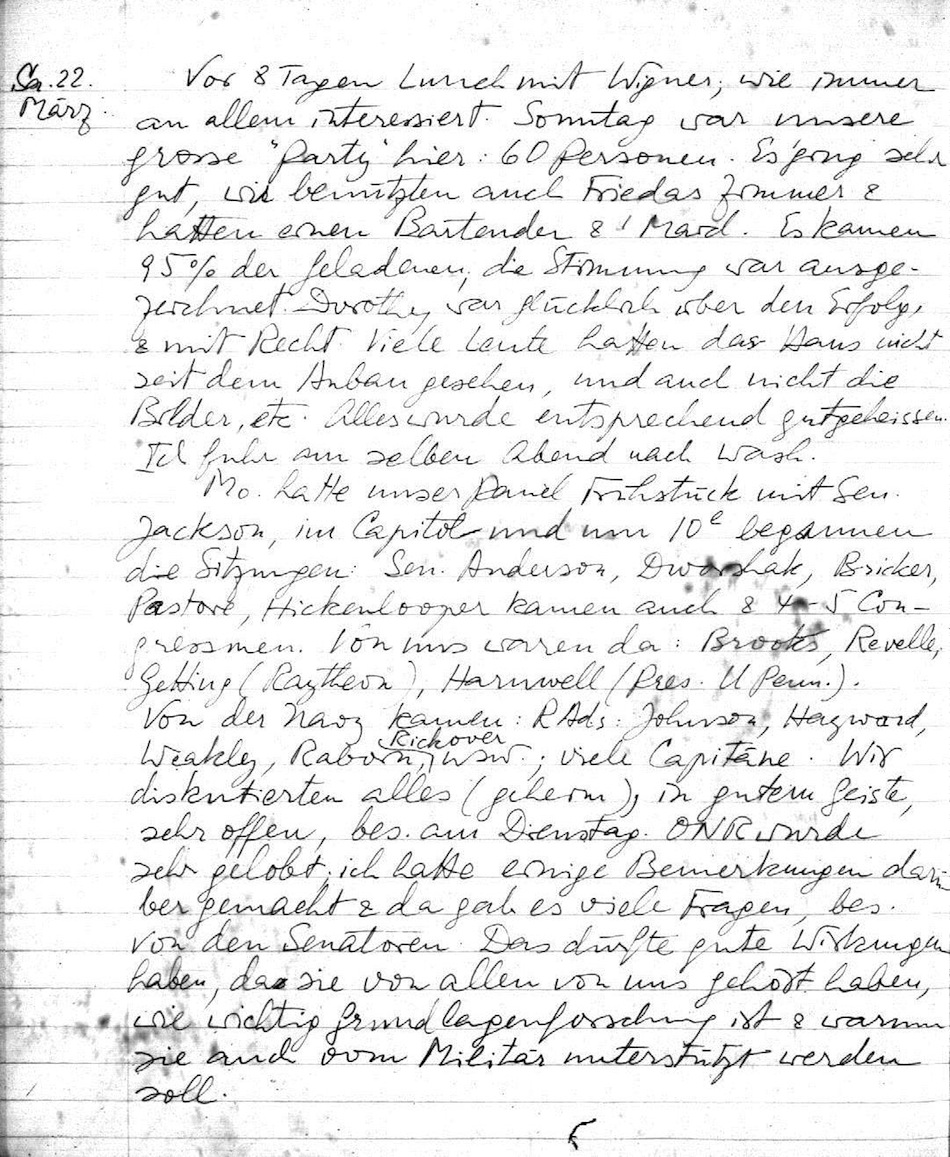 Sa. 22. März.
Vor 8 Tagen Lunch mit Wigner, wie immer
an allem interessiert. Sonntag war unsere
grosse "Party" hier: 60 Personen. Es ging sehr
gut, wir benützten auch Friedas Zimmer &
hatten einen Bartender & 1 Maid. Es kamen
95% der Geladenen, die Stimmung war ausge-
zeichnet. Dorothy war glücklich über den Erfolg,
& mit Recht. Viele Leute hatten das Haus nicht
seit dem Anbau gesehen, und auch nicht die
Bilder, etc. Alles wurde entsprechend gutgeheissen.
Ich fuhr am selben Abend nach Wash.
Mo. hatte unser Panel Frühstück mit Sen.
Jackson, im Capitol und um 10h begannen
die Sitzungen: Sen. Anderson, Dworshak, Bricker,
Pastore, Hickenlooper kamen auch & 4-5 Con-
gressmen. Von uns waren da: Brooks, Revelle,
Getting (Raytheon), Harnwell (Pres. U Penn.).
Von der Navy kamen: RAds: Johnson, Hayward,
Weakley, Raborn, Rickover, usw.; viele Capitäne. Wir
diskutierten alles (geheim), in gutem Geiste,
sehr offen, bes. am Dienstag. ONR wurde
sehr gelobt; ich hatte einige Bemerkungen darü
ber gemacht & da gab es viele Fragen, bes.
von den Senatoren. Das dürfte gute Wirkungen
haben, da sie von allen von uns gehört haben,
wie wichtig Grundlagenforschung ist & warum
sie auch vom Militär unterstützt werden
soll.